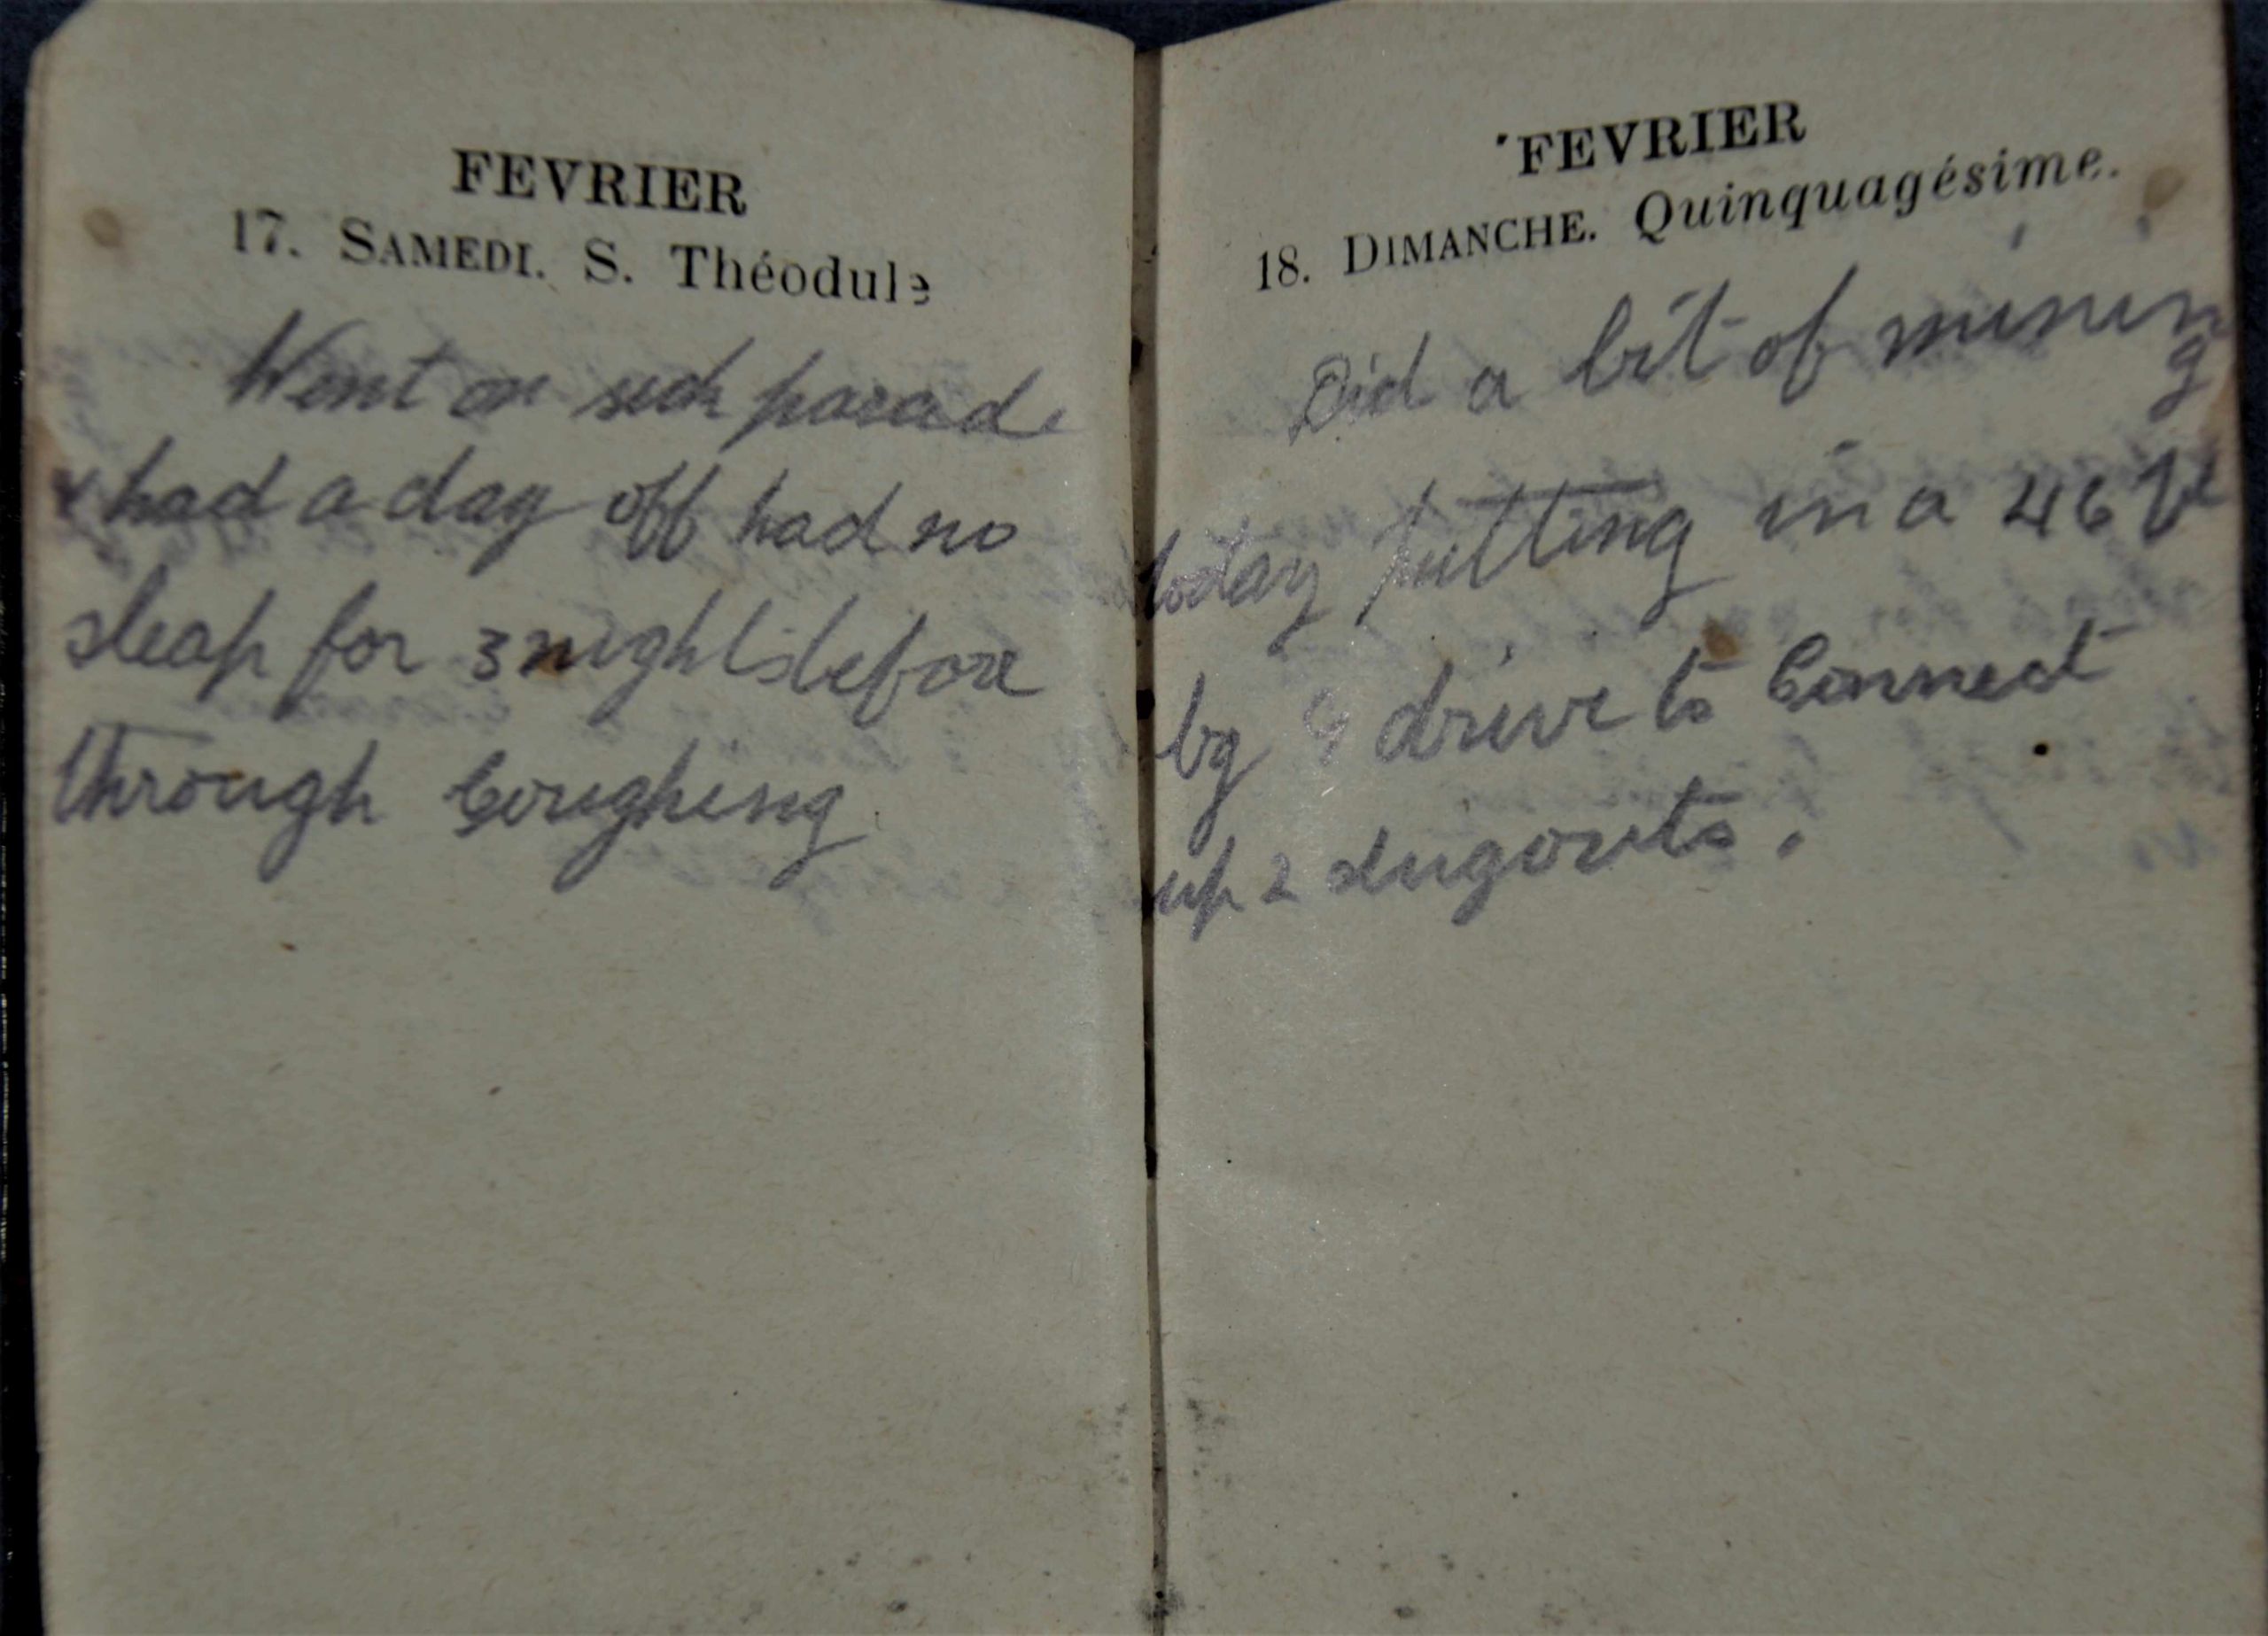 FEVRIER
17. SAMEDI. S. Théodule
Went on sick parade
& had a day off had no
sleap for 3 nights before
through Coughing
FEVRIER
18. DIMANCHE. Quinquagésime.
Did a bit of mining
today putting in a 4 6
by drive to Connect
up 2 dugouts.